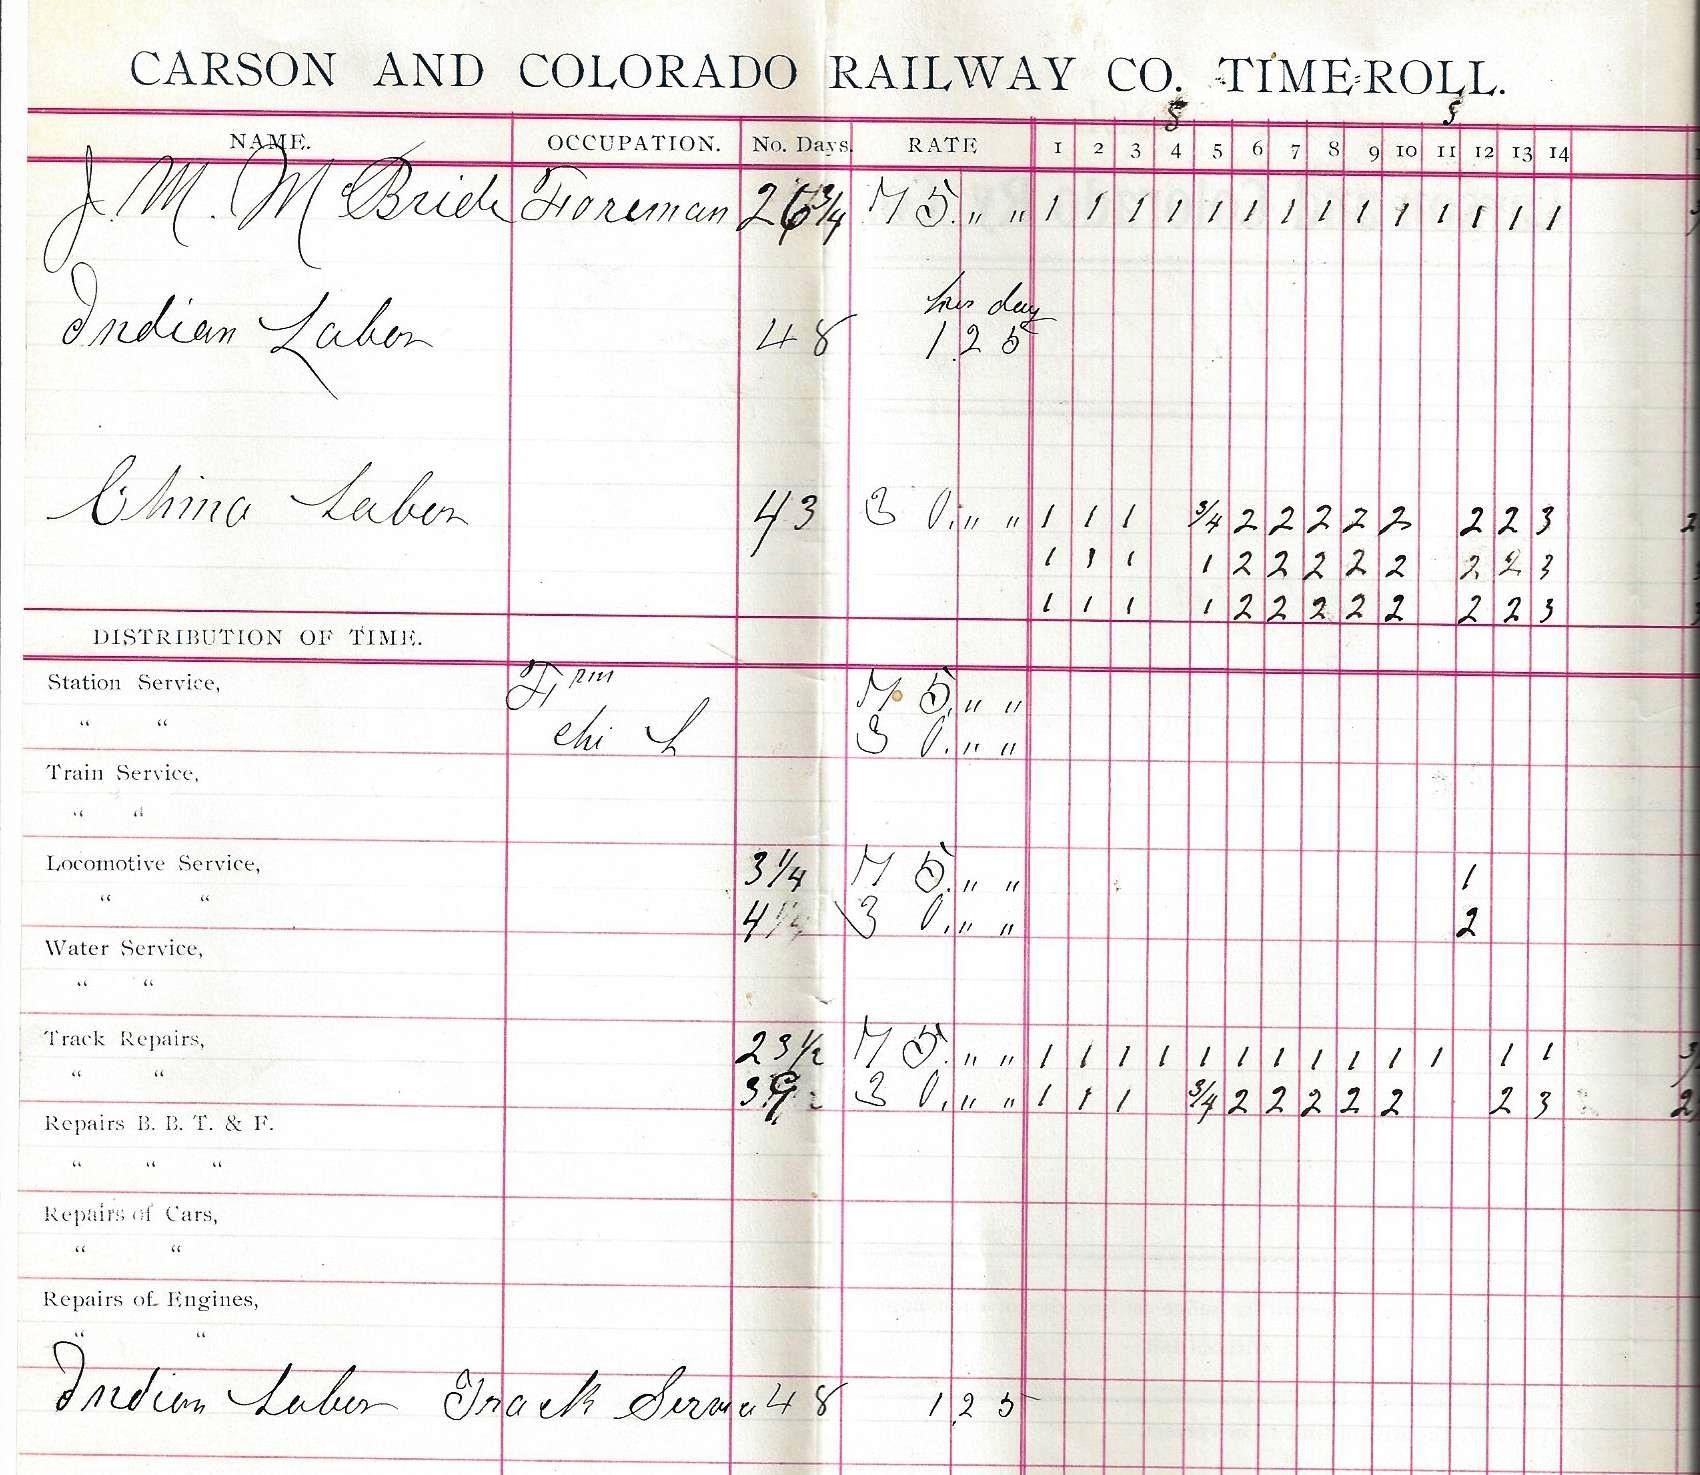 CARSON AND COLORADO RAILWAY CO. TIME-ROLL.
S S
NAME. OCCUPATION. No. Days. RATE 1 2 3 4 5 6 7 8 9 10 11 12 13 14
J. M. McBride Foreman 26 3/4 75. " " 1 1 1 1 1 1 1 1 1 1 1 1 1 1
day
Indian Labor 48 1 25
China Labor 43 30. " " 1 1 1 3/4 2 2 2 2 2 2 2 3
1 1 1 1 2 2 2 2 2 2 2 3
1 1 1 1 2 2 2 2 2 2 2 3
DISTRIBUTION OF TIME.
Station Service, Frm 75. " "
" " Chi L 30. " "
Train Service,
" "
Locomotive Service, 3 1/4 75. " " 1
" " 4 1/4 30. " " 2
Water Service,
" "
Track Repairs, 23 1/2 75. " " 1 1 1 1 1 1 1 1 1 1 1 1 1
" " 30. " " 1 1 1 3/4 2 2 2 2 2 2 3
Repairs B. B. T. & F.
" " "
Repairs of Cars,
" "
Repairs of Engines,
" "
Indian Labor Track 48 1 25